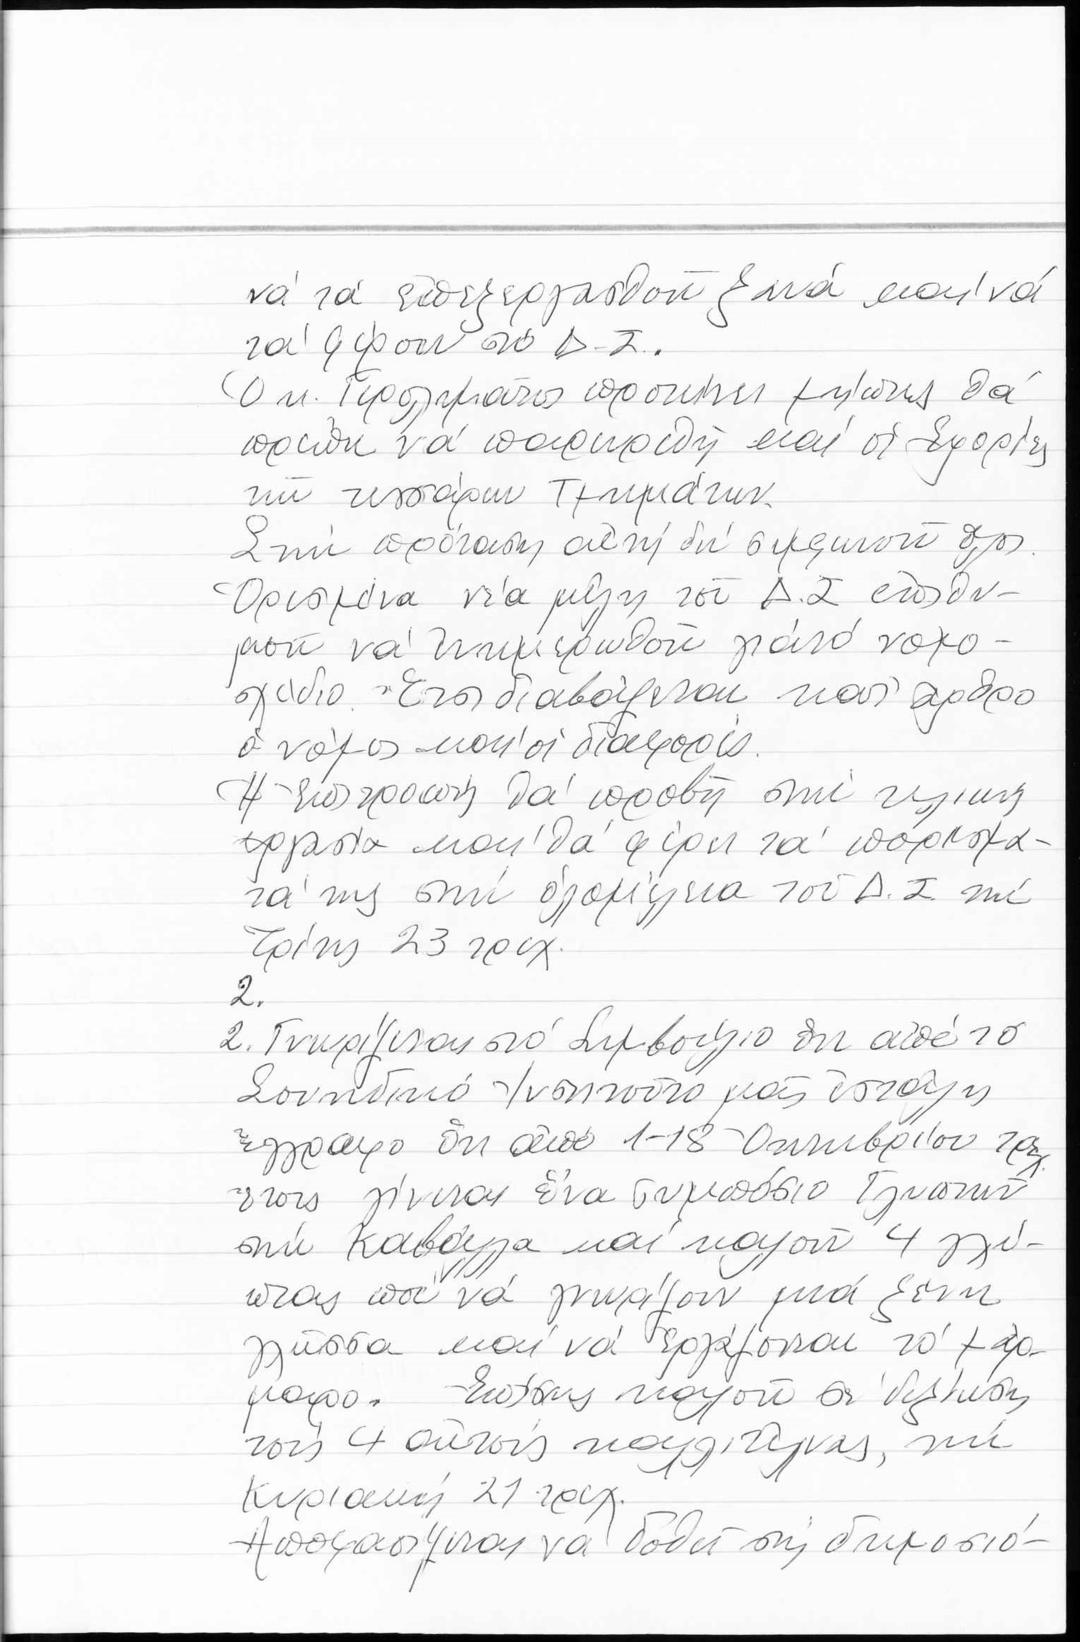 νά τά ἐπεξεργασθοῦν ξανά καί νά
τά φέρουν στό Δ.Σ.
Ὁ κ. προτείνει μήπως θά
πρέπει νά παρευρεθῆ καί οἱ Ἐφορίες
τῶν τεσσάρων Τμημάτων.
Στήν πρόταση αὐτή δέν συμφωνοῦν ὅλοι.
Ὁρισμένα νέα μέλη τοῦ Δ.Σ ἐπιθυ-
μοῦν νά ἐνημερωθοῦν γιά τό νομο-
σχέδιο. Ἔτσι διαβάζεται κατ' ἄρθρο
ὁ νόμος καί οἱ διαφορές.
Ἡ Ἐπιτροπή θά προβῆ στήν τελική
ἐργασία καί θά φέρει τά πορίσμα-
τά της στήν ὁλομέλεια τοῦ Δ.Σ τήν
Τρίτη 23 τρεχ.
2.
2. Γνωρίζεται στό Συμβούλιο ὅτι ἀπό τό
Σουηδικό Ἰνστιτοῦτο μᾶς ἐστάλη
ἔγγραφο ὅτι ἀπό 1-18 Ὀκτωβρίου τρεχ.
ἔτους γίνεται ἕνα συμπόσιο Γλυπτῶν
στήν Καβάλλα καί καλοῦν 4 γλύ-
πτας πού νά γνωρίζουν μιά ξένη
γλῶσσα καί νά ἐργάζονται τό μάρ-
μαρο. Ἐπίσης καλοῦν σέ δεξίωση
τούς 4 αὐτούς καλλιτέχνας, τήν
Κυριακή 21 τρεχ.
Ἀποφασίζεται νά δοθεῖ στή δημοσιό-